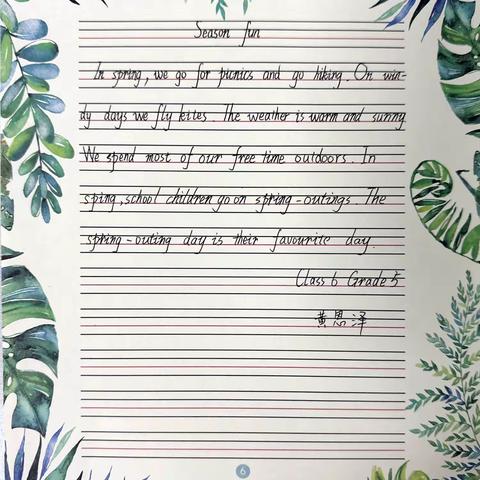 Season fun
In spring, we go for picnics and go hiking. On win-
dy days we fly kites. The weather is warm and sunny
We spend most of our free time outdoors. In
sping, school children go on spring-outings. The
spring-outing day is their favourite day.
Class 6 Grade 5
黄恩泽
6